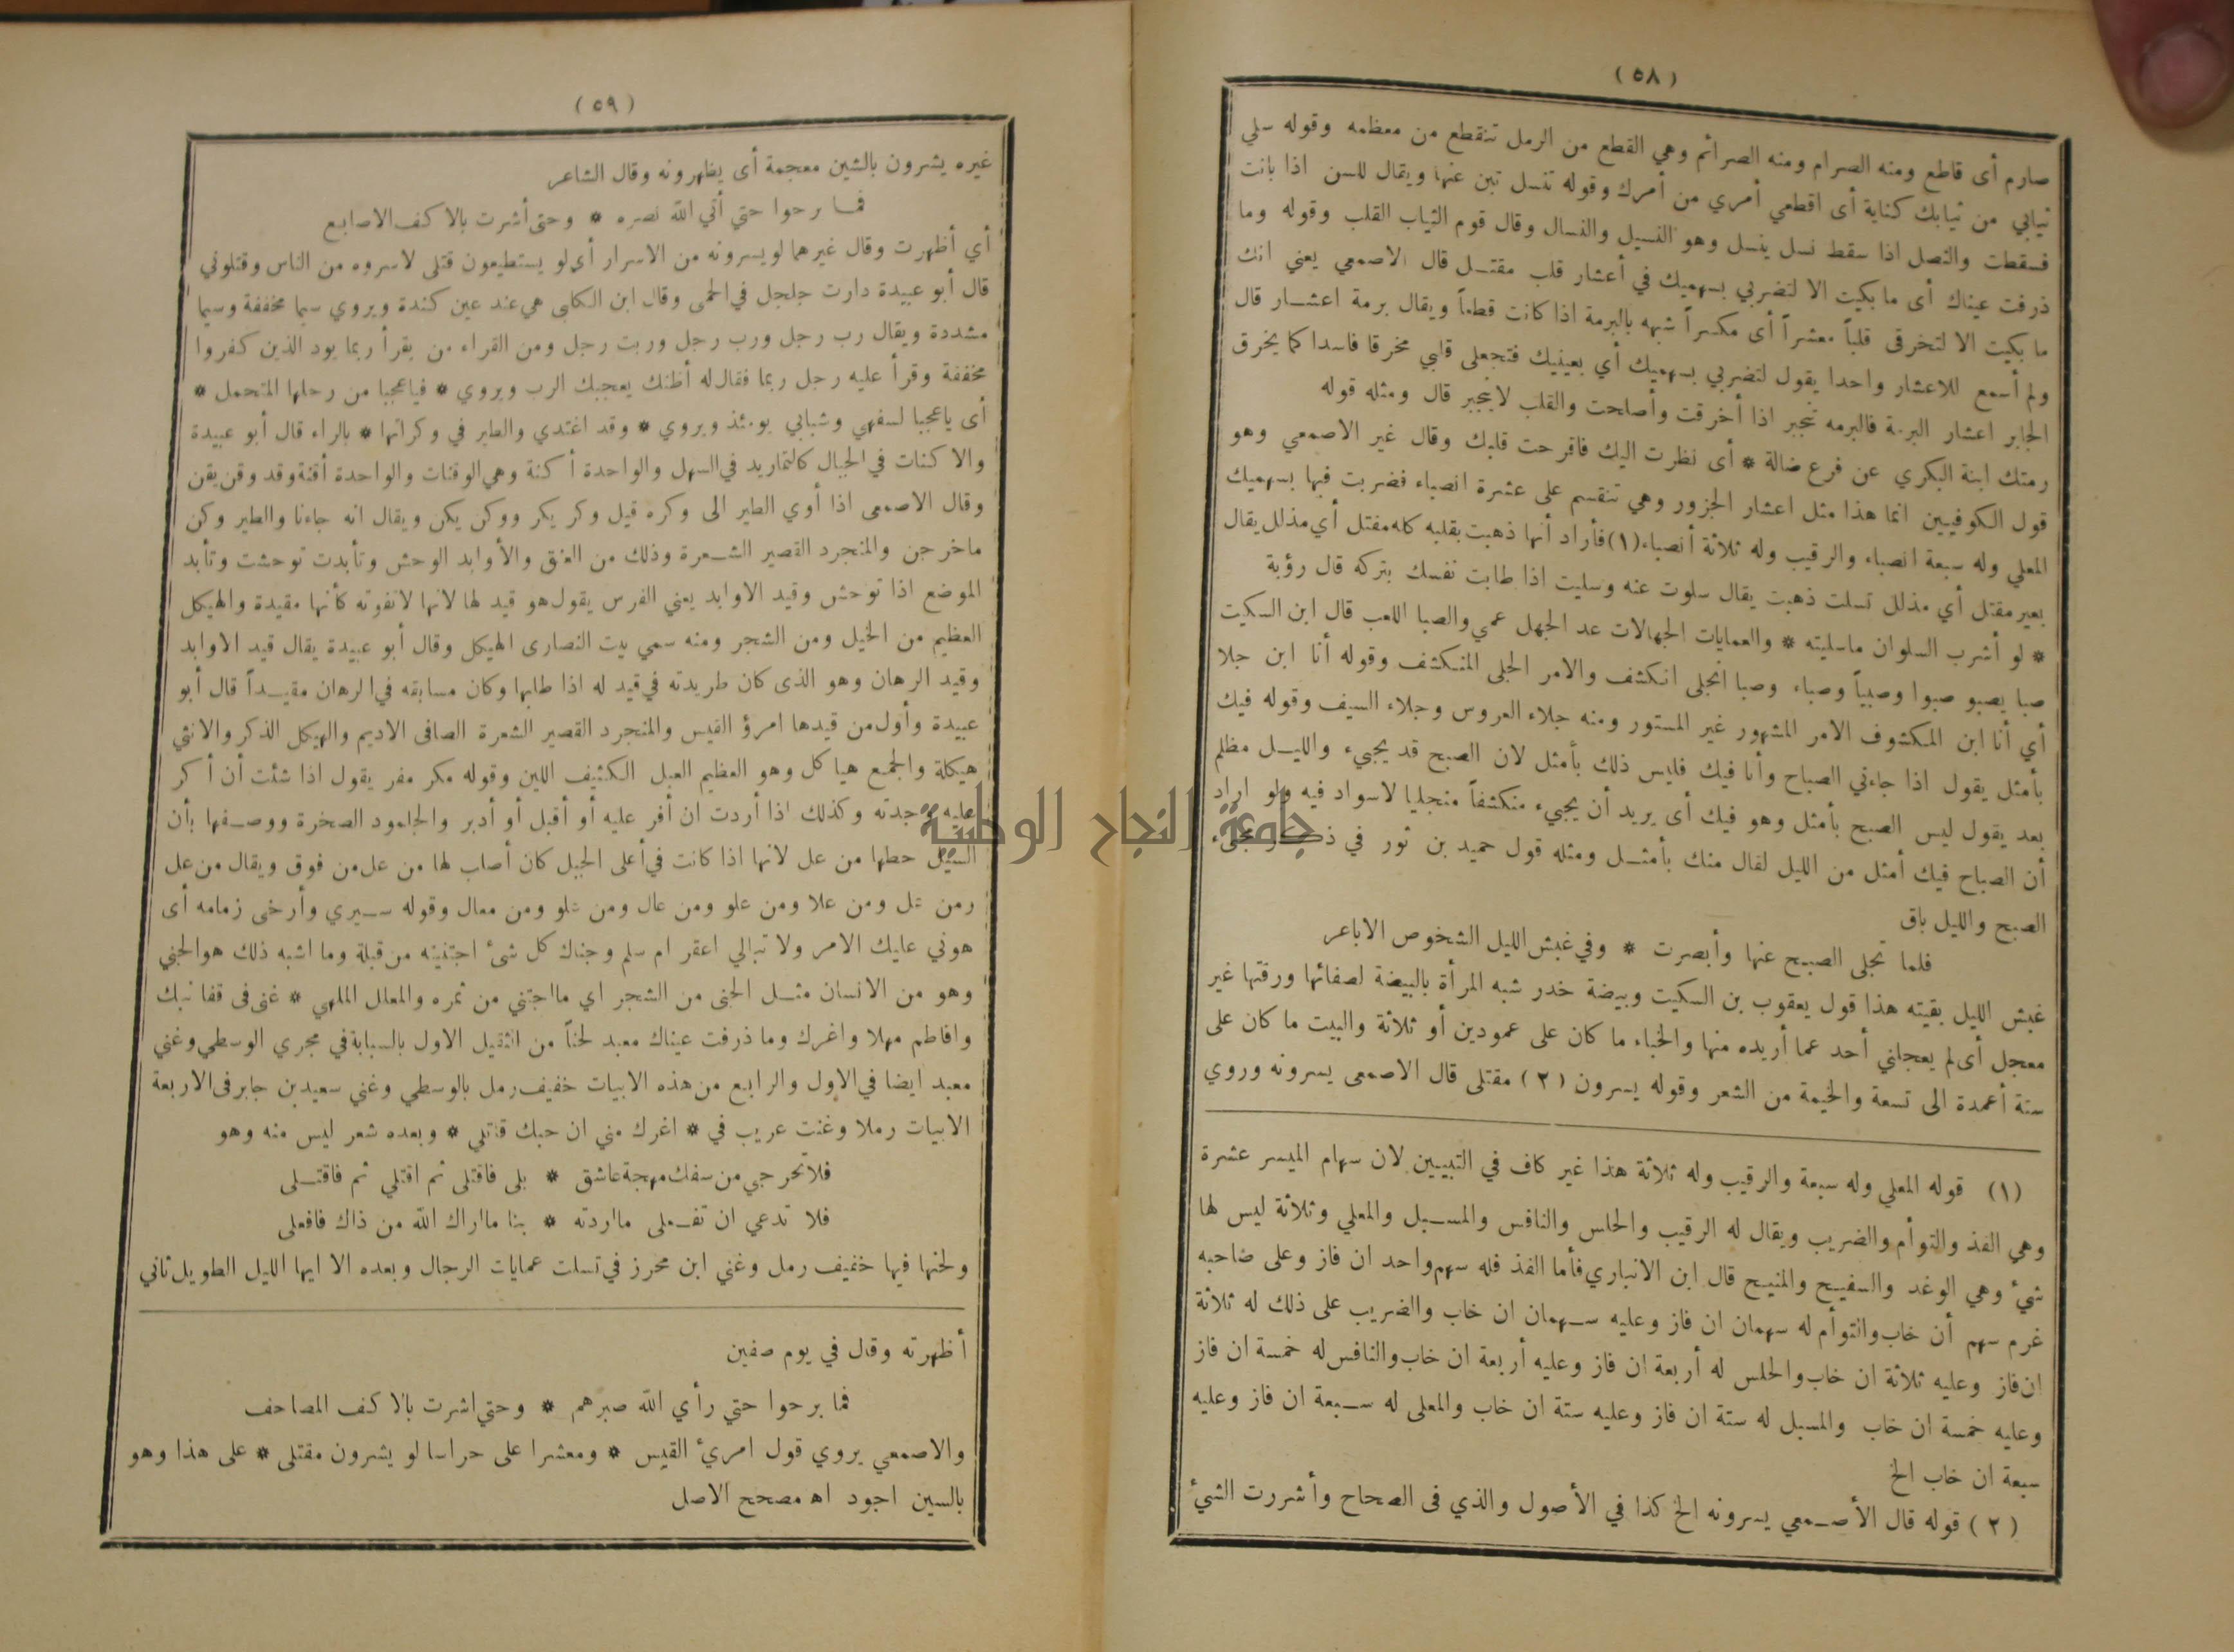 (٥٨)
صارم أى قاطع ومنه الصرام ومنه الصرائم وهي القطع من الرمل تنقطع من معظمه وقوله سلي
ثيابي من ثيابك كناية أى اقطعي أمري من أمرك وقوله تنسل تبن عنها ويقال للسن اذا بانت
فسقطت والنصل اذا سقط نسل ينسل وهو النسيل والنسال وقال قوم الثياب القلب وقوله وما
ذرفت عيناك أى ما بكيت الا لتضربي بسهميك في أعشار قلب مقتل قال الاصمعي يعني انك
ما بكيت الا لتخرقى قلباً معشراً أى مكسراً شبهه بالبرمة اذا كانت قطعاً ويقال برمة اعشار قال
ولم أسمع للاعشار واحدا يقول لتضربي بسهميك أي بعينيك فتجعلى قلبي مخرقا فاسدا كما يخرق
الجابر اعشار البرمة فالبرمه تنجبر اذا أخرقت وأصلحت والقلب لاينجبر قال ومثله قوله
رمتك ابنة البكري عن فرع ضالة * أى نظرت اليك فاقرحت قلبك وقال غير الاصمعي وهو
قول الكوفيين انما هذا مثل اعشار الجزور وهي تنقسم على عشرة انصباء فضربت فيها بسهميك
المعلي وله سبعة انصباء والرقيب وله ثلاثة أنصباء (١) فأراد أنها ذهبت بقلبه كله مقتل أي مذلل يقال
بعير مقتل أي مذلل تسلت ذهبت يقال سلوت عنه وسليت اذا طابت نفسك بتركه قال رؤبة
* لو أشرب السلوان ماسليته * والعمايات الجهالات عد الجهل عمي والصبا اللعب قال ابن السكيت
صبا يصبو صبوا وصبياً وصباء وصبا انجلى انكشف والامر الجلى المنكشف وقوله أنا ابن جلا
أي أنا ابن المكشوف الامر المشهور غير المستور ومنه جلاء العروس وجلاء السيف وقوله فيك
بأمثل يقول اذا جاءني الصباح وأنا فيك فليس ذلك بأمثل لان الصبح قد يجيء والليل مظلم
بعد يقول ليس الصبح بأمثل وهو فيك أى يريد أن يجيء منكشفاً منجليا لاسواد فيه ولو اراد
أن الصباح فيك أمثل من الليل لقال منك بأمثل ومثله قول حميد بن ثور في ذكر مجيء
الصبح والليل باق
فلما تجلى الصبح عنها وأبصرت * وفي غبش الليل الشخوص الاباعر
غبش الليل بقيته هذا قول يعقوب بن السكيت وبيضة خدر شبه المرأة بالبيضة لصفائها ورقتها غير
معجل أى لم يعجلني أحد عما أريده منها والخباء ما كان على عمودين أو ثلاثة والبيت ما كان على
ستة أعمدة الى تسعة والخيمة من الشعر وقوله يسرون (٢) مقتلى قال الاصمعى يسرونه وروي
(١) قوله المعلي وله سبعة والرقيب وله ثلاثة هذا غير كاف في التبيين لان سهام الميسر عشرة
وهي الفذ والتوأم والضريب ويقال له الرقيب والحلس والنافس والمسبل والمعلي وثلاثة ليس لها
شيء وهي الوغد والسفيح والمنيح قال ابن الانباري فأما الفذ فله سهم واحد ان فاز وعلى صاحبه
غرم سهم أن خاب والتوأم له سهمان ان فاز وعليه سهمان ان خاب والضريب على ذلك له ثلاثة
ان فاز وعليه ثلاثة ان خاب والحلس له أربعة ان فاز وعليه أربعة ان خاب والنافس له خمسة ان فاز
وعليه خمسة ان خاب والمسبل له ستة ان فاز وعليه ستة ان خاب والمعلى له سبعة ان فاز وعليه
سبعة ان خاب الخ
(٢) قوله قال الأصمعي يسرونه الخ كذا في الأصول والذي فى الصحاح وأشررت الشيء
(٥٩)
غيره يشرون بالشين معجمة أى يظهرونه وقال الشاعر
فما رحوا حتي أتي الله نصره * وحتى أشرت بالاكف الاصابع
أي أظهرت وقال غيرهما لو يسرونه من الاسرار أي لو يستطيعون قتلى لاسروه من الناس وقتلوني
قال أبو عبيدة دارت جلجل في الحمى وقال ابن الكلبى هي عند عين كندة ويروي سيما مخففة وسيما
مشددة ويقال رب رجل ورب رجل وربت رجل ومن القراء من يقرأ ربما يود الذين كفروا
مخففة وقرأ عليه رجل ربما فقال له أظنك يعجبك الرب ويروي * فياعجبا من رحلها المتحمل *
أى ياعجبا لسفهي وشبابي يومئذ ويروي * وقد اغتدي والطير في وكراتها * بالراء قال أبو عبيدة
والاكنات في الجبال كالتماريد في السهل والواحدة أكنة وهي الوقنات والواحدة أقنة وقد وقن يقن
وقال الاصمعى اذا أوي الطير الى وكره قيل وكر يكر ووكن يكن ويقال انه جاءنا والطير وكن
ماخرجن والمنجرد القصير الشعرة وذلك من العتق والأوابد الوحش وتأبدت توحشت وتأبد
الموضع اذا توحش وقيد الاوابد يعني الفرس يقول هو قيد لها لانها لاتفوته كأنها مقيدة والهيكل
العظيم من الخيل ومن الشجر ومنه سمي بيت النصارى الهيكل وقال أبو عبيدة يقال قيد الاوابد
وقيد الرهان وهو الذى كان طريدته في قيد له اذا طلبها وكان مسابقه في الرهان مقيداً قال أبو
عبيدة وأول من قيدها امرؤ القيس والمنجرد القصير الشعرة الصافى الاديم والهيكل الذكر والانثي
هيكلة والجمع هياكل وهو العظيم العبل الكثيف اللين وقوله مكر مفر يقول اذا شئت أن أكر
عليه وجدته وكذلك اذا أردت ان أفر عليه أو أقبل أو أدبر والجلمود الصخرة ووصفها بأن
السيل حطها من عل لانها اذا كانت في أعلى الجبل كان أصاب لها من عل من فوق ويقال من عل
ومن علا ومن علو ومن عال ومن ومن معال وقوله سيري وأرخى زمامه أى
هوني عليك الامر ولا تبالي اعقر ام سلم وجناك كل شئ اجتنيته من قبلة وما اشبه ذلك هو الجني
وهو من الانسان مثل الجنى من الشجر اي مااجتني من ثمره والمعلل الملهي * غنى فى قفا نبك
وافاطم مهلا واغرك وما ذرفت عيناك معبد لحناً من الثقيل الاول بالسبابة في مجري الوسطي وغني
معبد ايضا في الاول والرابع من هذه الابيات خفيف رمل بالوسطي وغني سعيد بن جابر فى الاربعة
الابيات رملا وغنت عريب في * اغرك مني ان حبك قاتلي * وبعده شعر ليس منه وهو
فلا تحرجي من سفك مهجة عاشق * بلى فاقتلى ثم اقتلي ثم فاقتلى
فلا تدعي ان تفعلى مااردته * بنا مااراك الله من ذاك فافعلى
ولحنها فيها خفيف رمل وغني ابن محرز في تسلت عمايات الرجال وبعده الا ايها الليل الطويل ثاني
أظهرته وقال في يوم صفين
فما برحوا حتي رأي الله صبرهم * وحتي اشرت بالاكف المصاحف
والاصمعي يروي قول امريء القيس * ومعشرا على حراسا لو يشرون مقتلى * على هذا وهو
بالسين اجود اه مصحح الاصل
جامعة النجاح الوطنية